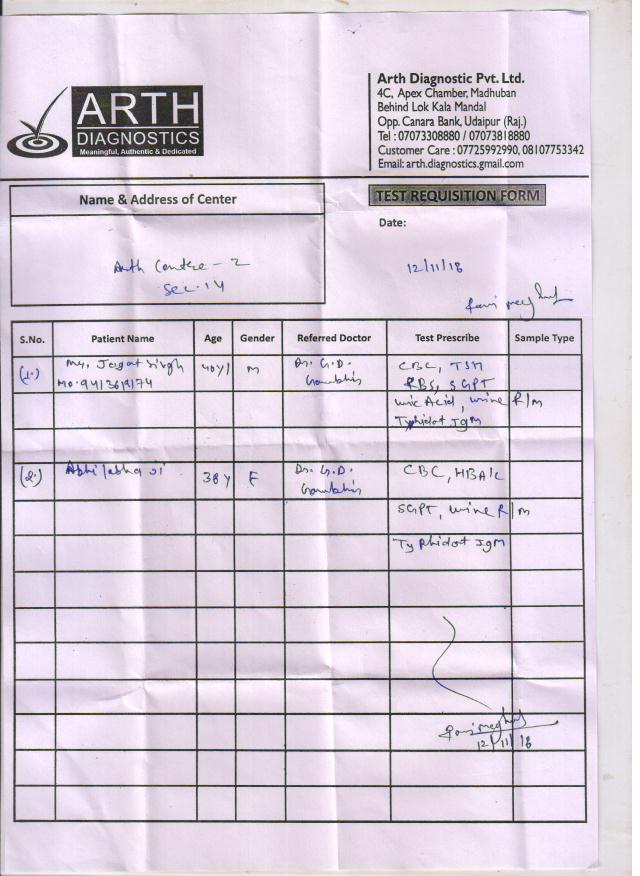 ARTH
DIAGNOSTICS
Meaningful, Authentic & Dedicated
Arth Diagnostic Pvt. Ltd.
4C, Apex Chamber, Madhuban
Behind Lok Kala Mandal
Opp. Canara Bank, Udaipur (Raj.)
Tel : 07073308880 / 07073818880
Customer Care : 07725992990, 08107753342
Email: arth.diagnostics.gmail.com
Name & Address of Center
TEST REQUISITION FORM
Date:
Arth Centre - 2
Sec. 14
12/11/18
S.No. Patient Name Age Gender Referred Doctor Test Prescribe Sample Type
(1.) Mr. Jagat Singh 40Y M Dr. G.D. CBC, TSH
Mo. RBS, SGPT
uric Acid, urine R/M
Typhidot IgM
(2.) Abhilasha Ji 38 Y F Dr. G.D. CBC, HBA1C
SGPT, urine R/M
Typhidot IgM
12/11/18